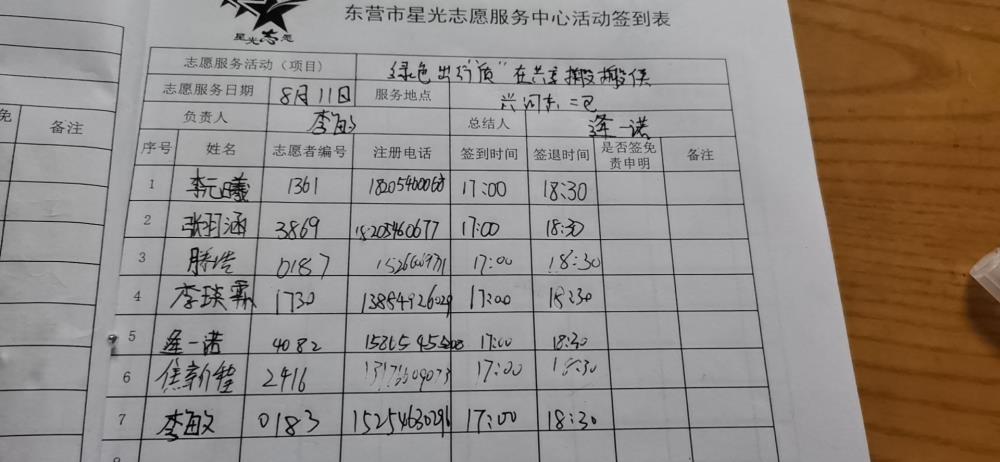 星光志愿
东营市星光志愿服务中心活动签到表
志愿服务活动（项目） 绿色出行"质"在共享 搬搬侠
志愿服务日期 8月11日 服务地点
负责人 李敏 总结人 逄一诺
免 备注
序号 姓名 志愿者编号 注册电话 签到时间 签退时间 是否签免责申明 备注
1 李元曦 1361 18205460068 17:00 18:30
2 张羽涵 3869 15205460677 17:00 18:30
3 滕浩 0187 17:00 18:30
4 李琰霏 1730 17:00 18:30
5 逄一诺 4082 17:00 18:30
6 焦新程 2416 17:00 18:30
7 李敏 0183 15254630296 17:00 18:30
8